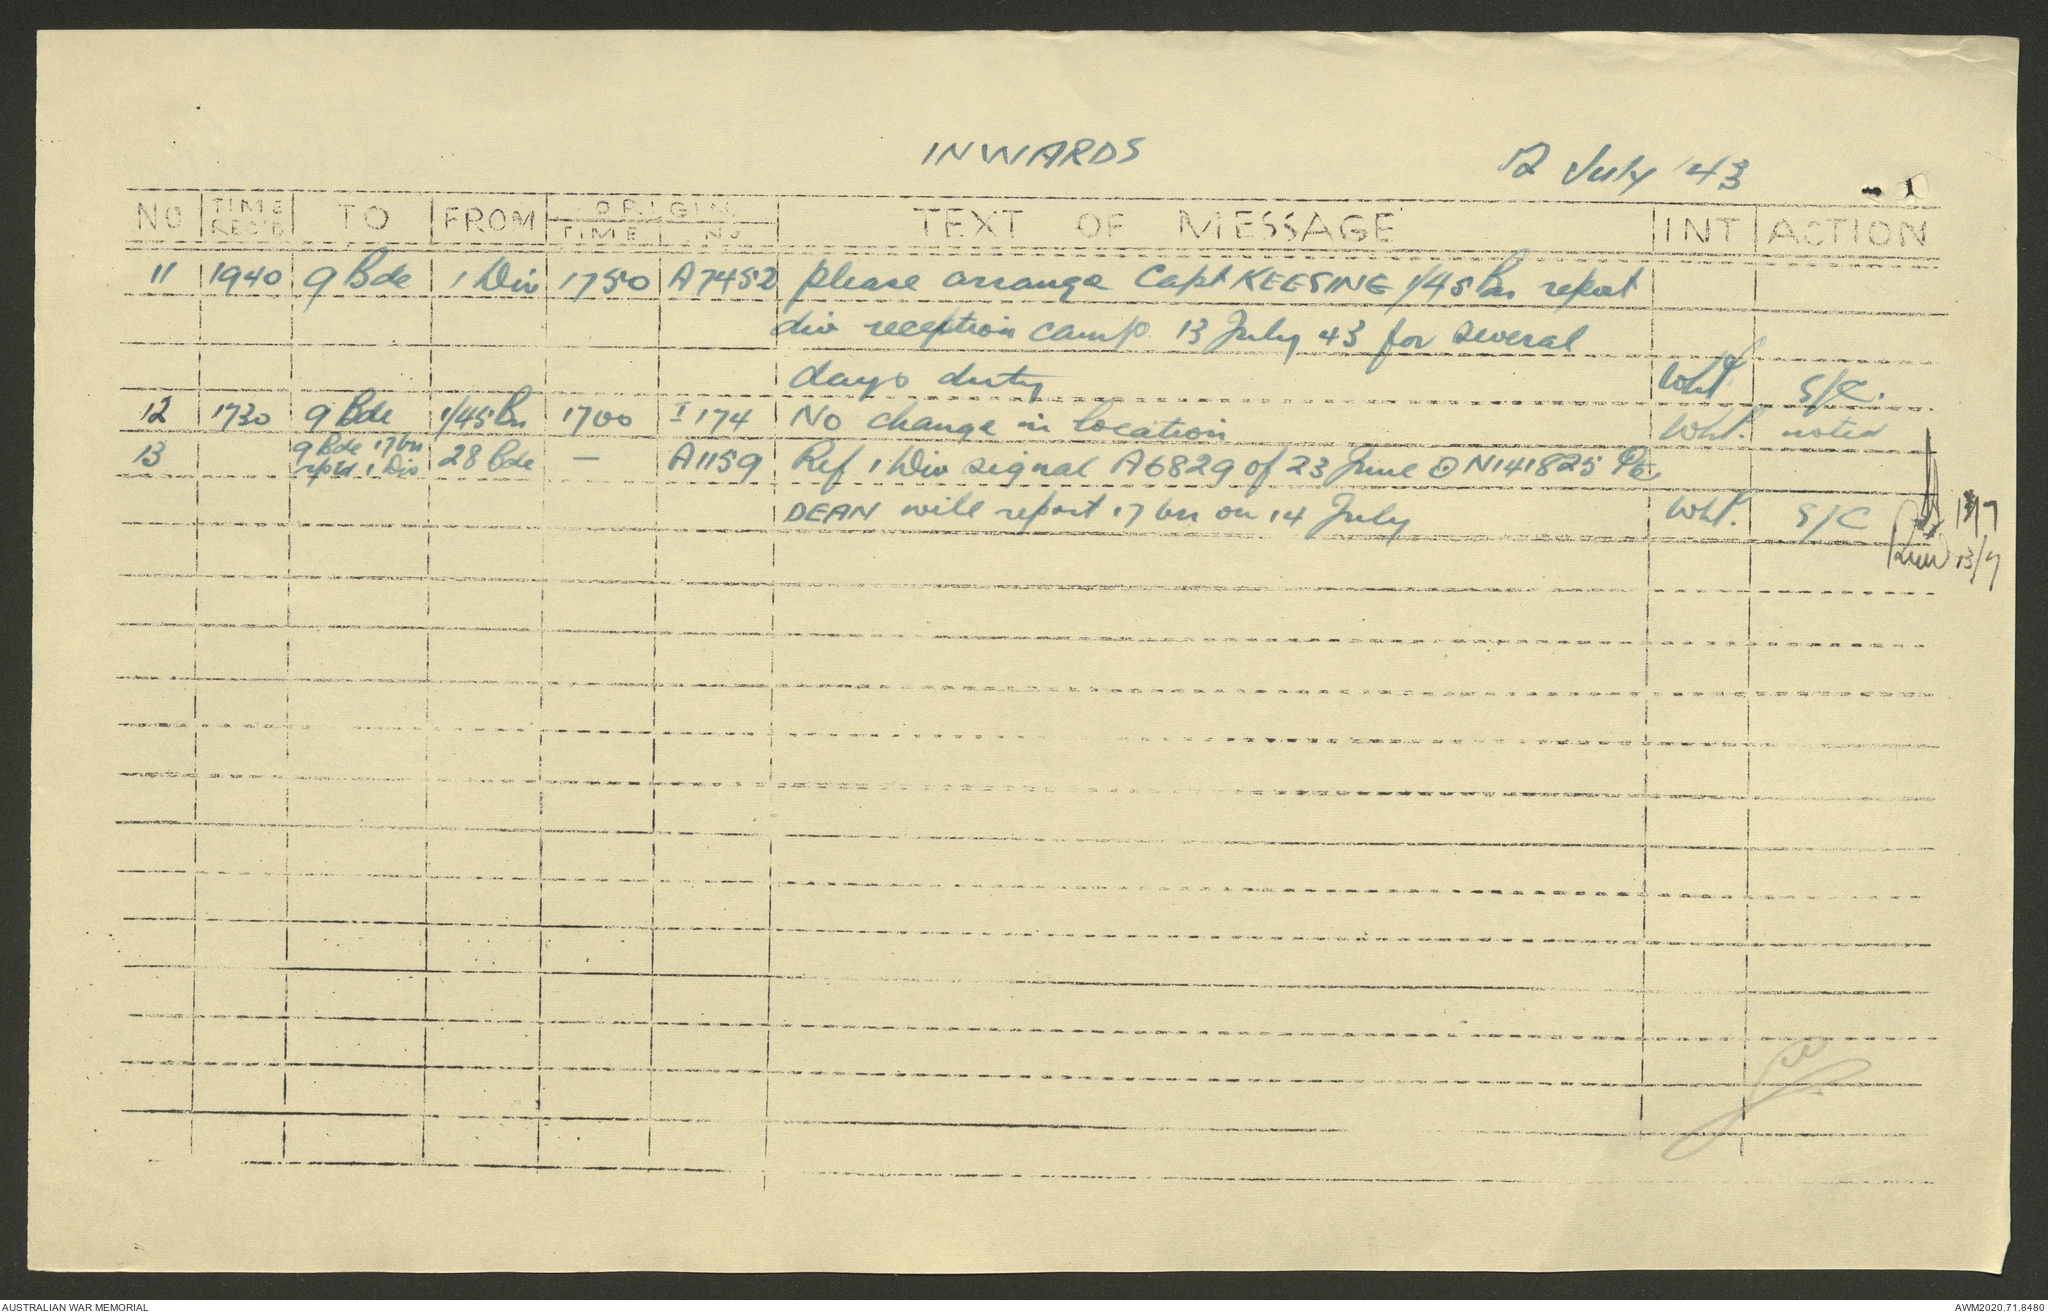 INWARDS
12 July '43
NO TIME REC'D TO FROM ORIGIN TIME NO TEXT OF MESSAGE INT ACTION
11 1940 9 Bde 1 Div 1750 A7452 please arrange Capt KEESING 1/45 Bn report
div reception camp 13 July 43 for several
days duty Wht S/C.
12 1730 9 Bde 1/45 Bn 1700 I 174 No change in location Wht. noted
13 9 Bde 17 bn rptd 1 Div 28 Bde — A1159 Ref 1 Div signal A6829 of 23 June ⊙ N141825 Pte
DEAN will report 17 bn on 14 July Wht. S/C
13/7
13/7
AUSTRALIAN WAR MEMORIAL
AWM2020.71.8480